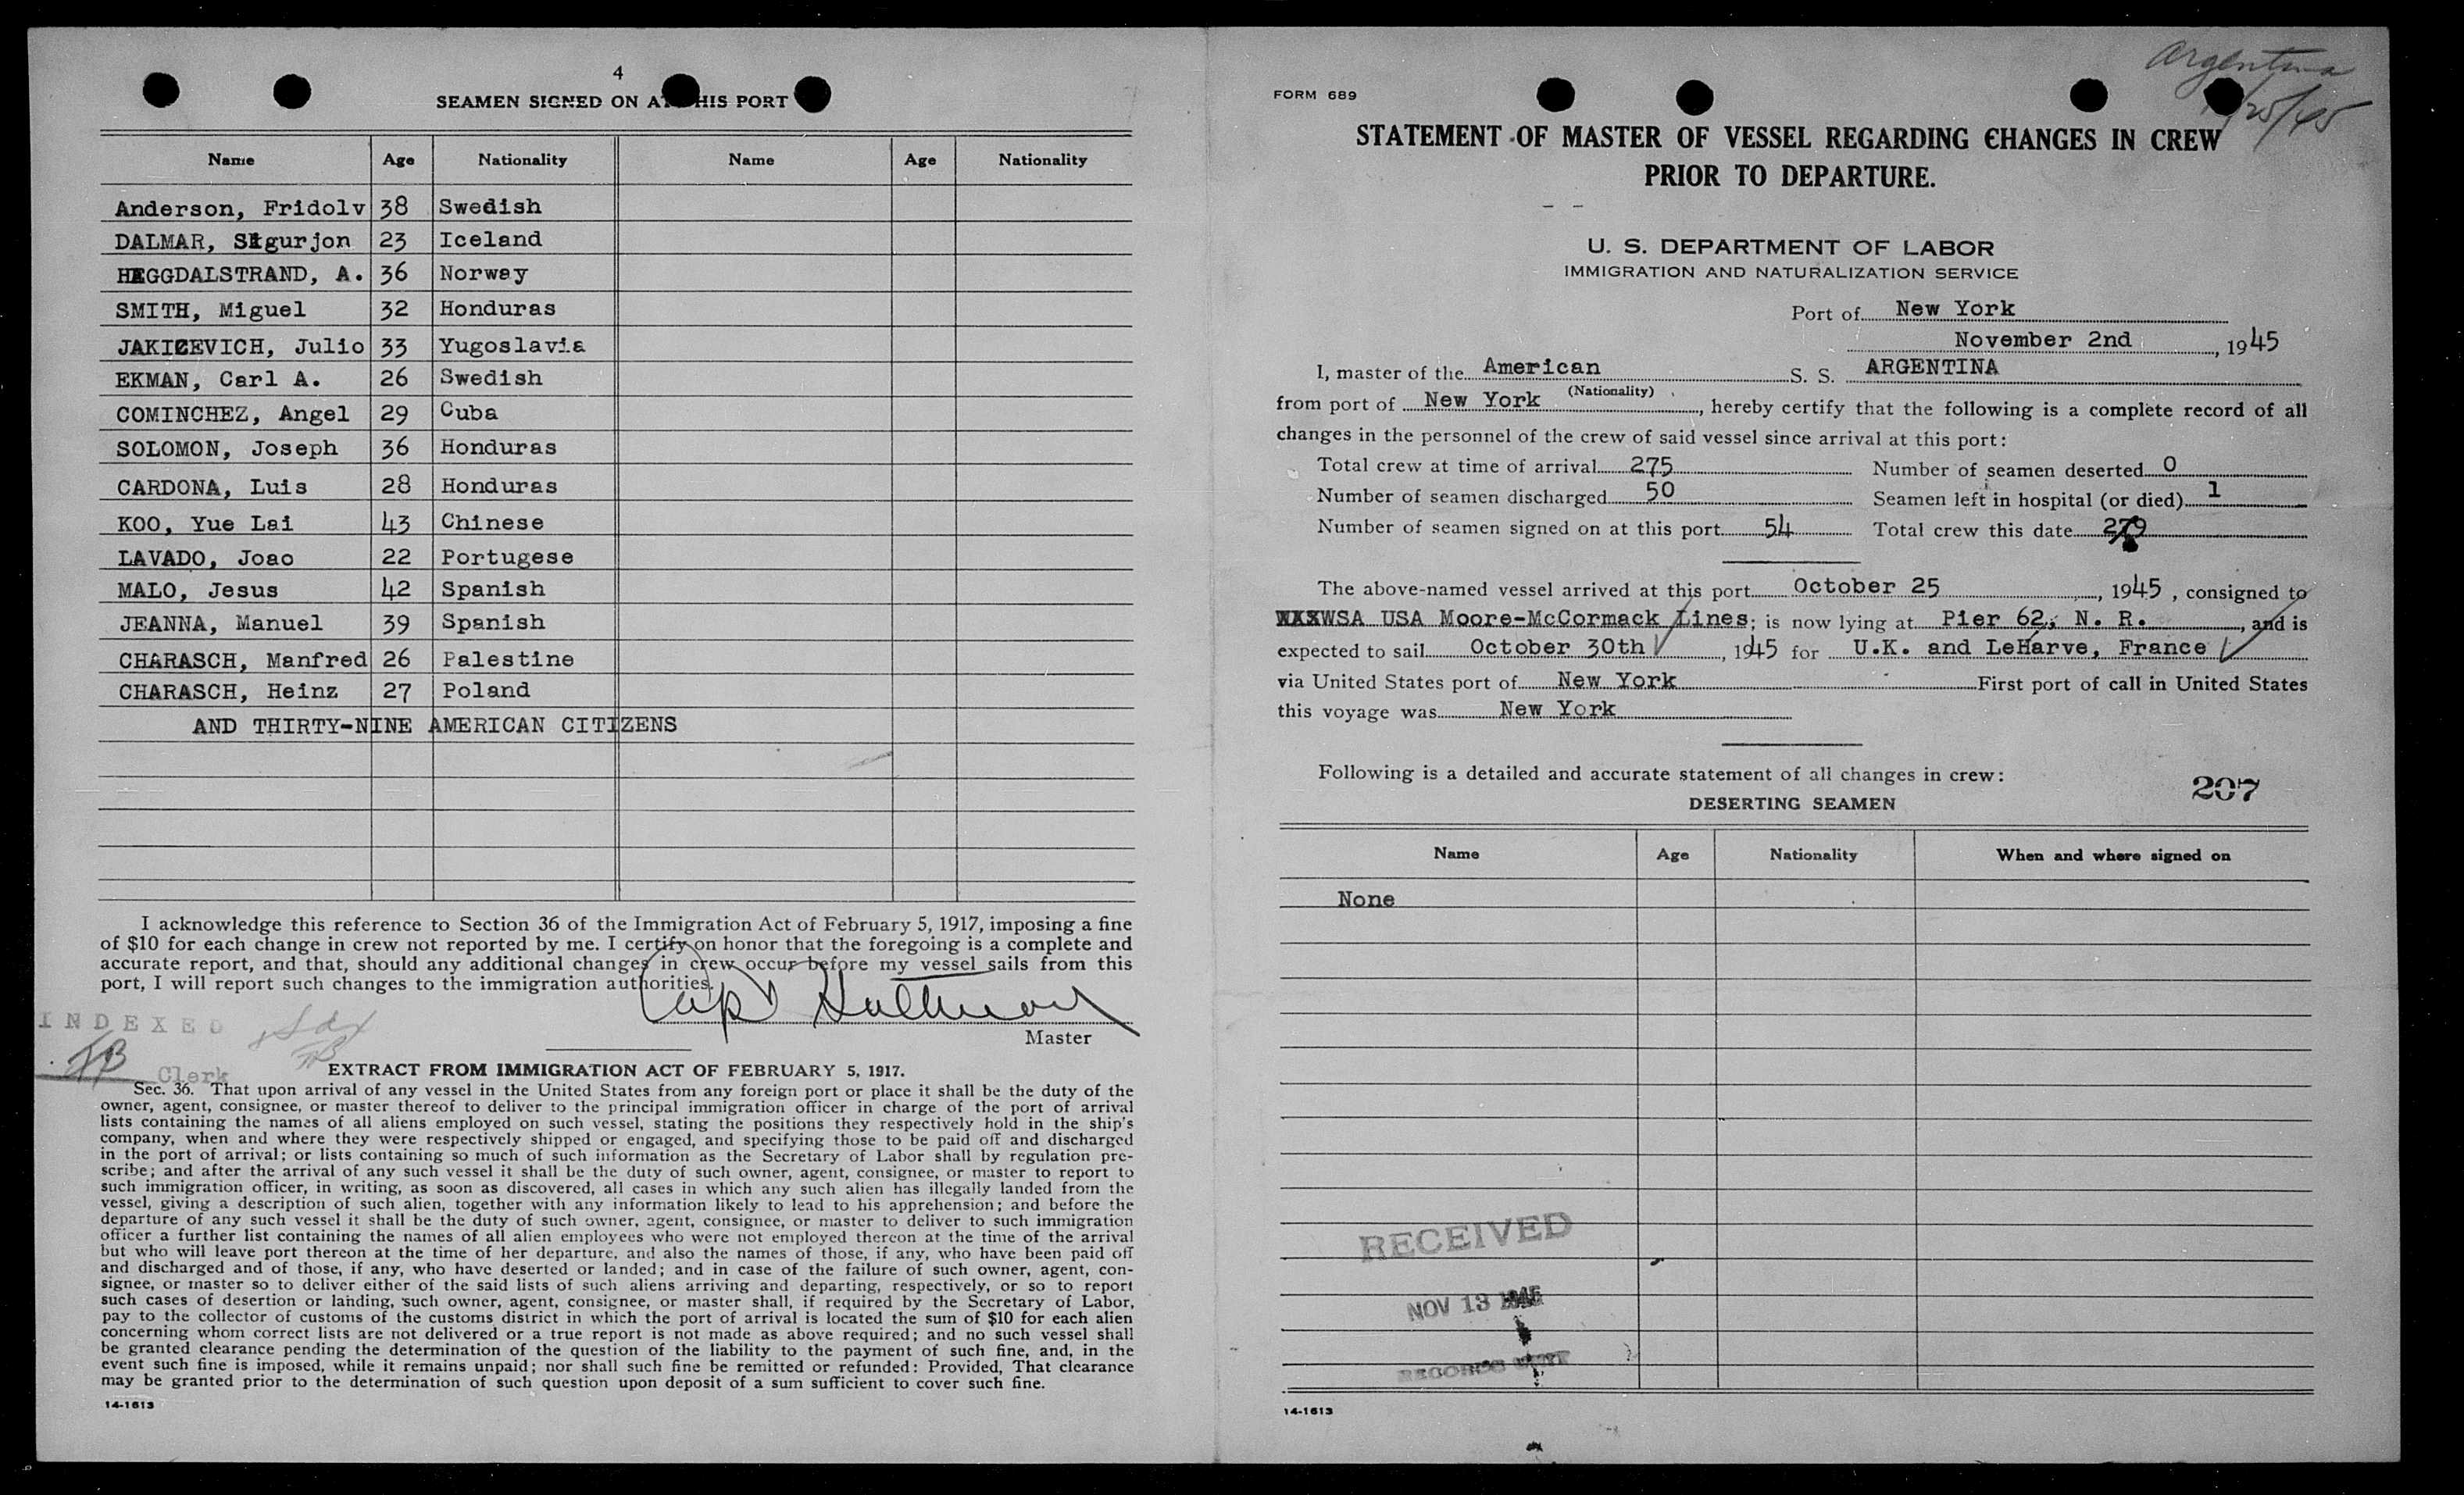 4
SEAMEN SIGNED ON AT THIS PORT
Name Age Nationality Name Age Nationality
Anderson, Fridolv 38 Swedish
DALMAR, Sigurjon 23 Iceland
HAGGDALSTRAND, A. 36 Norway
SMITH, Miguel 32 Honduras
JAKICEVICH, Julio 33 Yugoslavia
EKMAN, Carl A. 26 Swedish
COMINCHEZ, Angel 29 Cuba
SOLOMON, Joseph 36 Honduras
CARDONA, Luis 28 Honduras
KOO, Yue Lai 43 Chinese
LAVADO, Joao 22 Portugese
MALO, Jesus 42 Spanish
JEANNA, Manuel 39 Spanish
CHARASCH, Manfred 26 Palestine
CHARASCH, Heinz 27 Poland
AND THIRTY-NINE AMERICAN CITIZENS
I acknowledge this reference to Section 36 of the Immigration Act of February 5, 1917, imposing a fine
of $10 for each change in crew not reported by me. I certify on honor that the foregoing is a complete and
accurate report, and that, should any additional changes in crew occur before my vessel sails from this
port, I will report such changes to the immigration authorities.
Master
INDEXED
Clerk
EXTRACT FROM IMMIGRATION ACT OF FEBRUARY 5, 1917.
Sec. 36. That upon arrival of any vessel in the United States from any foreign port or place it shall be the duty of the
owner, agent, consignee, or master thereof to deliver to the principal immigration officer in charge of the port of arrival
lists containing the names of all aliens employed on such vessel, stating the positions they respectively hold in the ship's
company, when and where they were respectively shipped or engaged, and specifying those to be paid off and discharged
in the port of arrival; or lists containing so much of such information as the Secretary of Labor shall by regulation pre-
scribe; and after the arrival of any such vessel it shall be the duty of such owner, agent, consignee, or master to report to
such immigration officer, in writing, as soon as discovered, all cases in which any such alien has illegally landed from the
vessel, giving a description of such alien, together with any information likely to lead to his apprehension; and before the
departure of any such vessel it shall be the duty of such owner, agent, consignee, or master to deliver to such immigration
officer a further list containing the names of all alien employees who were not employed thereon at the time of the arrival
but who will leave port thereon at the time of her departure, and also the names of those, if any, who have been paid off
and discharged and of those, if any, who have deserted or landed; and in case of the failure of such owner, agent, con-
signee, or master so to deliver either of the said lists of such aliens arriving and departing, respectively, or so to report
such cases of desertion or landing, such owner, agent, consignee, or master shall, if required by the Secretary of Labor,
pay to the collector of customs of the customs district in which the port of arrival is located the sum of $10 for each alien
concerning whom correct lists are not delivered or a true report is not made as above required; and no such vessel shall
be granted clearance pending the determination of the question of the liability to the payment of such fine, and, in the
event such fine is imposed, while it remains unpaid; nor shall such fine be remitted or refunded: Provided, That clearance
may be granted prior to the determination of such question upon deposit of a sum sufficient to cover such fine.
14-1613
Argentina
FORM 689
STATEMENT OF MASTER OF VESSEL REGARDING CHANGES IN CREW
PRIOR TO DEPARTURE.
U. S. DEPARTMENT OF LABOR
IMMIGRATION AND NATURALIZATION SERVICE
Port of New York
November 2nd, 1945
I, master of the American S. S. ARGENTINA
(Nationality)
from port of New York, hereby certify that the following is a complete record of all
changes in the personnel of the crew of said vessel since arrival at this port:
Total crew at time of arrival 275 Number of seamen deserted 0
Number of seamen discharged 50 Seamen left in hospital (or died) 1
Number of seamen signed on at this port 54 Total crew this date
The above-named vessel arrived at this port October 25, 1945, consigned to
WSA USA Moore-McCormack Lines; is now lying at Pier 62, N. R., and is
expected to sail October 30th, 1945 for U.K. and LeHarve, France
via United States port of New York First port of call in United States
this voyage was New York
Following is a detailed and accurate statement of all changes in crew:
207
DESERTING SEAMEN
Name Age Nationality When and where signed on
None
RECEIVED
NOV 13 1945
RECORDS UNIT
14-1613